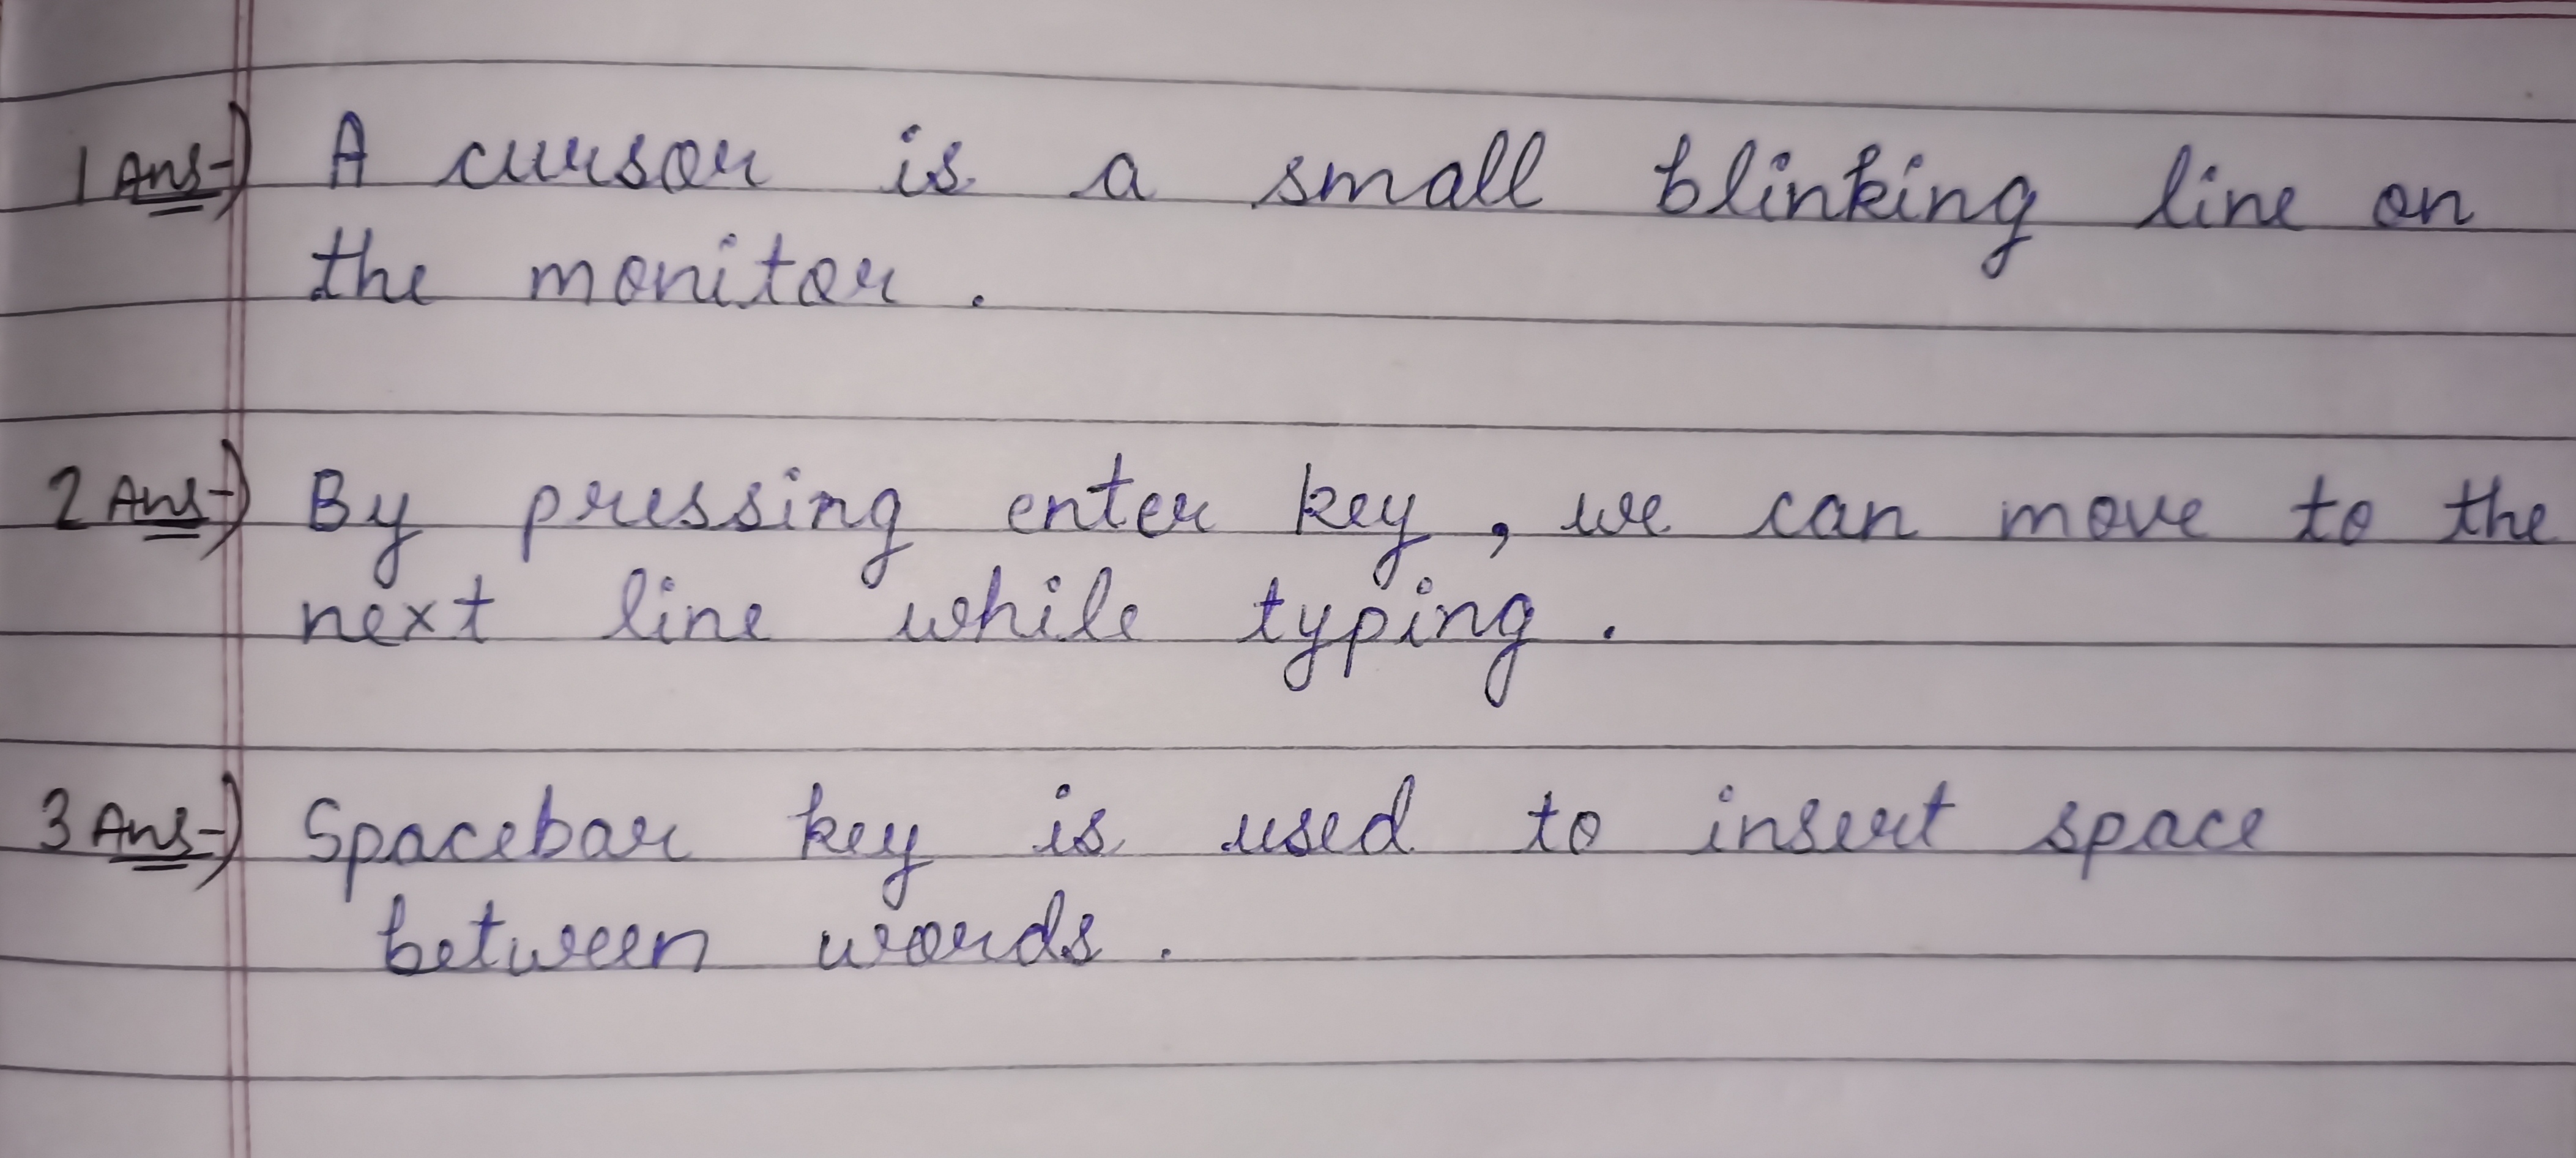 1 Ans-) A cursor is a small blinking line on
the monitor.
2 Ans-) By pressing enter key, we can move to the
next line while typing.
3 Ans-) Spacebar key is used to insert space
between words.